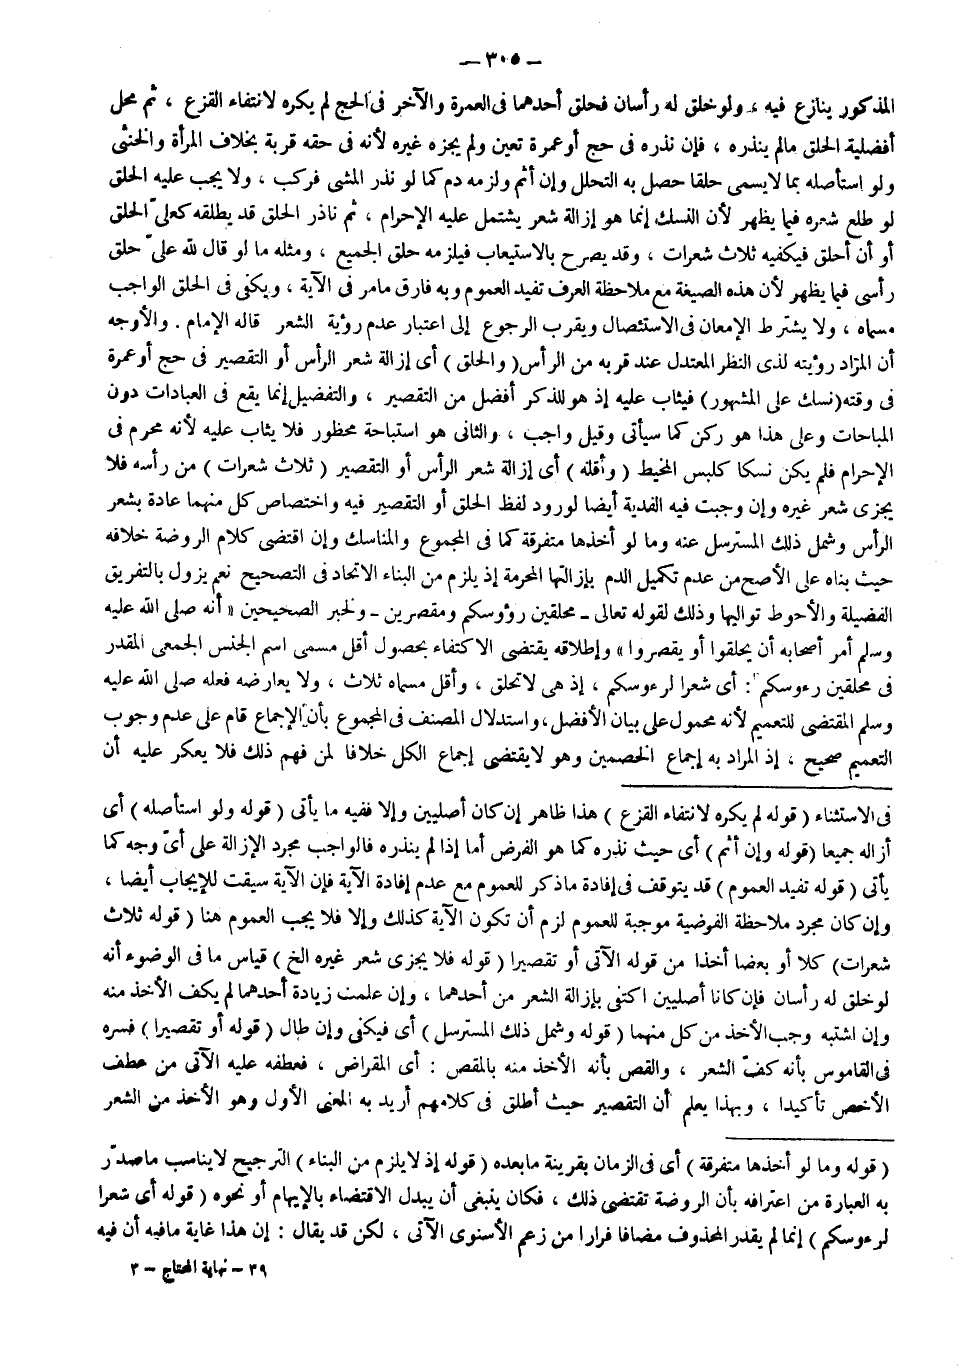 — ٣٠٥ —
المذكور ينازع فيه ، ولو خلق له رأسان فحلق أحدهما فى العمرة والآخر فى الحج لم يكره لانتفاء القزع ، ثم محل
أفضلية الحلق مالم ينذره ، فإن نذره فى حج أو عمرة تعين ولم يجزه غيره لأنه فى حقه قربة بخلاف المرأة والخنثى
ولو استأصله بما لا يسمى حلقا حصل به التحلل وإن أثم ولزمه دم كما لو نذر المشى فركب ، ولا يجب عليه الحلق
لو طلع شعره فيما يظهر لأن النسك إنما هو إزالة شعر يشتمل عليه الإحرام ، ثم ناذر الحلق قد يطلقه كعلىّ الحلق
أو أن أحلق فيكفيه ثلاث شعرات ، وقد يصرح بالاستيعاب فيلزمه حلق الجميع ، ومثله ما لو قال لله علىّ حلق
رأسى فيما يظهر لأن هذه الصيغة مع ملاحظة العرف تفيد العموم وبه فارق مامر فى الآية ، ويكفى فى الحلق الواجب
مسماه ، ولا يشترط الإمعان فى الاستئصال ويقرب الرجوع إلى اعتبار عدم رؤية الشعر قاله الإمام . والأوجه
أن المراد رؤيته لذى النظر المعتدل عند قربه من الرأس ( والحلق ) أى إزالة شعر الرأس أو التقصير فى حج أو عمرة
فى وقته (نسك على المشهور) فيثاب عليه إذ هو للذكر أفضل من التقصير ، والتفضيل إنما يقع فى العبادات دون
المباحات وعلى هذا هو ركن كما سيأتى وقيل واجب ، والثانى هو استباحة محظور فلا يثاب عليه لأنه محرم فى
الإحرام فلم يكن نسكا كلبس المخيط ( وأقله ) أى إزالة شعر الرأس أو التقصير ( ثلاث شعرات ) من رأسه فلا
يجزى شعر غيره وإن وجبت فيه الفدية أيضا لورود لفظ الحلق أو التقصير فيه واختصاص كل منهما عادة بشعر
الرأس وشمل ذلك المسترسل عنه وما لو أخذها متفرقة كما فى المجموع والمناسك وإن اقتضى كلام الروضة خلافه
حيث بناه على الأصح من عدم تكميل الدم بإزالتها المحرمة إذ يلزم من البناء الاتحاد فى التصحيح نعم يزول بالتفريق
الفضيلة والأحوط تواليها وذلك لقوله تعالى ـ محلقين رؤوسكم ومقصرين ـ ولخبر الصحيحين « أنه صلى الله عليه
وسلم أمر أصحابه أن يحلقوا أو يقصروا » وإطلاقه يقتضى الاكتفاء بحصول أقل مسمى اسم الجنس الجمعى المقدر
فى محلقين رءوسكم : أى شعرا لرءوسكم ، إذ هى لاتحلق ، وأقل مسماه ثلاث ، ولا يعارضه فعله صلى الله عليه
وسلم المقتضى للتعميم لأنه محمول على بيان الأفضل ، واستدلال المصنف فى المجموع بأن الإجماع قام على عدم وجوب
التعميم صحيح ، إذ المراد به إجماع الخصمين وهو لا يقتضى إجماع الكل خلافا لمن فهم ذلك فلا يعكر عليه أن
فى الاستثناء ( قوله لم يكره لانتفاء القزع ) هذا ظاهر إن كان أصليين وإلا ففيه ما يأتى ( قوله ولو استأصله ) أى
أزاله جميعا ( قوله وإن أثم ) أى حيث نذره كما هو الفرض أما إذا لم ينذره فالواجب مجرد الإزالة على أىّ وجه كما
يأتى ( قوله تفيد العموم ) قد يتوقف فى إفادة ماذكر للعموم مع عدم إفادة الآية فإن الآية سيقت للإيجاب أيضا ،
وإن كان مجرد ملاحظة الفوضية موجبة للعموم لزم أن تكون الآية كذلك وإلا فلا يجب العموم هنا ( قوله ثلاث
شعرات) كلا أو بعضا أخذا من قوله الآتى أو تقصيرا ( قوله فلا يجزى شعر غيره الخ ) قياس ما فى الوضوء أنه
لو خلق له رأسان فإن كانا أصليين اكتفى بإزالة الشعر من أحدهما ، وإن علمت زيادة أحدهما لم يكف الأخذ منه
وإن اشتبه وجب الأخذ من كل منهما ( قوله وشمل ذلك المسترسل ) أى فيكفى وإن طال ( قوله أو تقصيرا ) فسره
فى القاموس بأنه كفّ الشعر ، والقص بأنه الأخذ منه بالمقص : أى المقراض ، فعطفه عليه الآتى من عطف
الأخص تأكيدا ، وبهذا يعلم أن التقصير حيث أطلق فى كلامهم أريد به المعنى الأول وهو الأخذ من الشعر
( قوله وما لو أخذها متفرقة ) أى فى الزمان بقرينة مابعده ( قوله إذ لا يلزم من البناء ) الترجيح لا يناسب ماصدّر
به العبارة من اعترافه بأن الروضة تقتضى ذلك ، فكان ينبغى أن يبدل الاقتضاء بالإيهام أو نحوه ( قوله أى شعرا
لرءوسكم ) إنما لم يقدر المحذوف مضافا فرارا من زعم الأسنوى الآتى ، لكن قد يقال : إن هذا غاية مافيه أن فيه
٣٩ - نهاية المحتاج - ٣